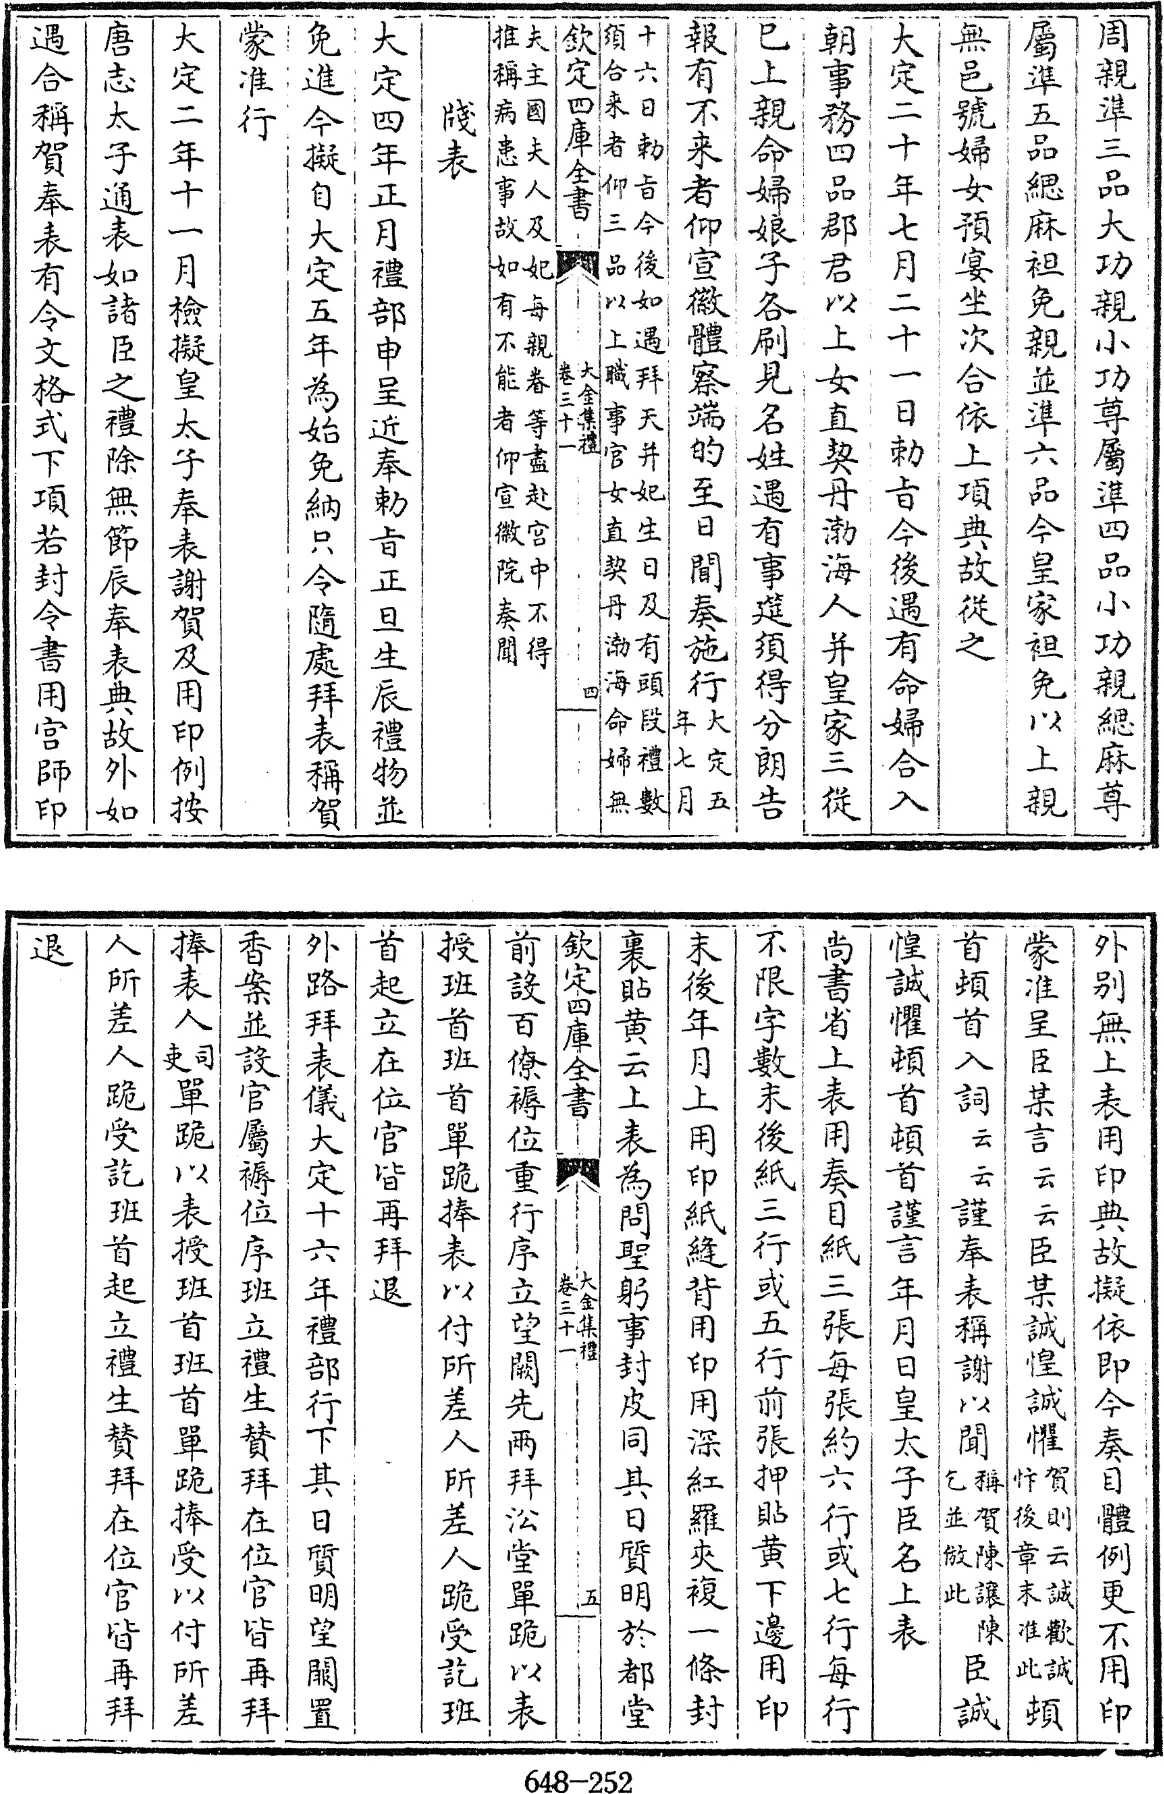 周親準三品大功親小功尊屬準四品小功親緦麻尊
屬準五品緦麻袒免親並準六品今皇家袒免以上親
無邑號婦女預宴坐次合依上項典故從之
大定二十年七月二十一日勅㫖今後遇有命婦合入
朝事務四品郡君以上女直契丹渤海人并皇家三從
已上親命婦娘子各刷見名姓遇有事筵須得分朗告
報有不来者仰宣徽體察端的至日聞奏施行大定五
年七月
十六日勅㫖今後如遇拜天并妃生日及有頭段禮數
須合来者仰三品以上職事官女直契丹渤海命婦無
欽定四庫全書
大金集禮
卷三十一
四
夫主國夫人及妃每親眷等盡赴宫中不得
推稱病患事故如有不能者仰宣徽院奏聞
牋表
大定四年正月禮部申呈近奉勅㫖正旦生辰禮物並
免進今擬自大定五年為始免納只令隨處拜表稱賀
蒙准行
大定二年十一月檢擬皇太子奉表謝賀及用印例按
唐志太子通表如諸臣之禮除無節辰奉表典故外如
遇合稱賀奉表有令文格式下項若封令書用宫師印
外别無上表用印典故擬依即今奏目體例更不用印
蒙准呈臣某言云云臣某誠惶誠懼賀則云誠歡誠
忭後章末准此頓
首頓首入詞云云謹奉表稱謝以聞稱賀陳讓陳
乞並倣此臣誠
惶誠懼頓首頓首謹言年月日皇太子臣名上表
尚書省上表用奏目紙三張每張約六行或七行每行
不限字數末後紙三行或五行前張押貼黄下邊用印
末後年月上用印紙縫背用印用深紅羅夾複一條封
裏貼黄云上表為問聖躬事封皮同其日質明於都堂
欽定四庫全書
大金集禮
卷三十一
五
前設百僚褥位重行序立望闕先兩拜訟堂單跪以表
授班首班首單跪捧表以付所差人所差人跪受訖班
首起立在位官皆再拜退
外路拜表儀大定十六年禮部行下其日質明望闕置
香案並設官屬褥位序班立禮生賛拜在位官皆再拜
捧表人司
吏單跪以表授班首班首單跪捧受以付所差
人所差人跪受訖班首起立禮生賛拜在位官皆再拜
退
648-252